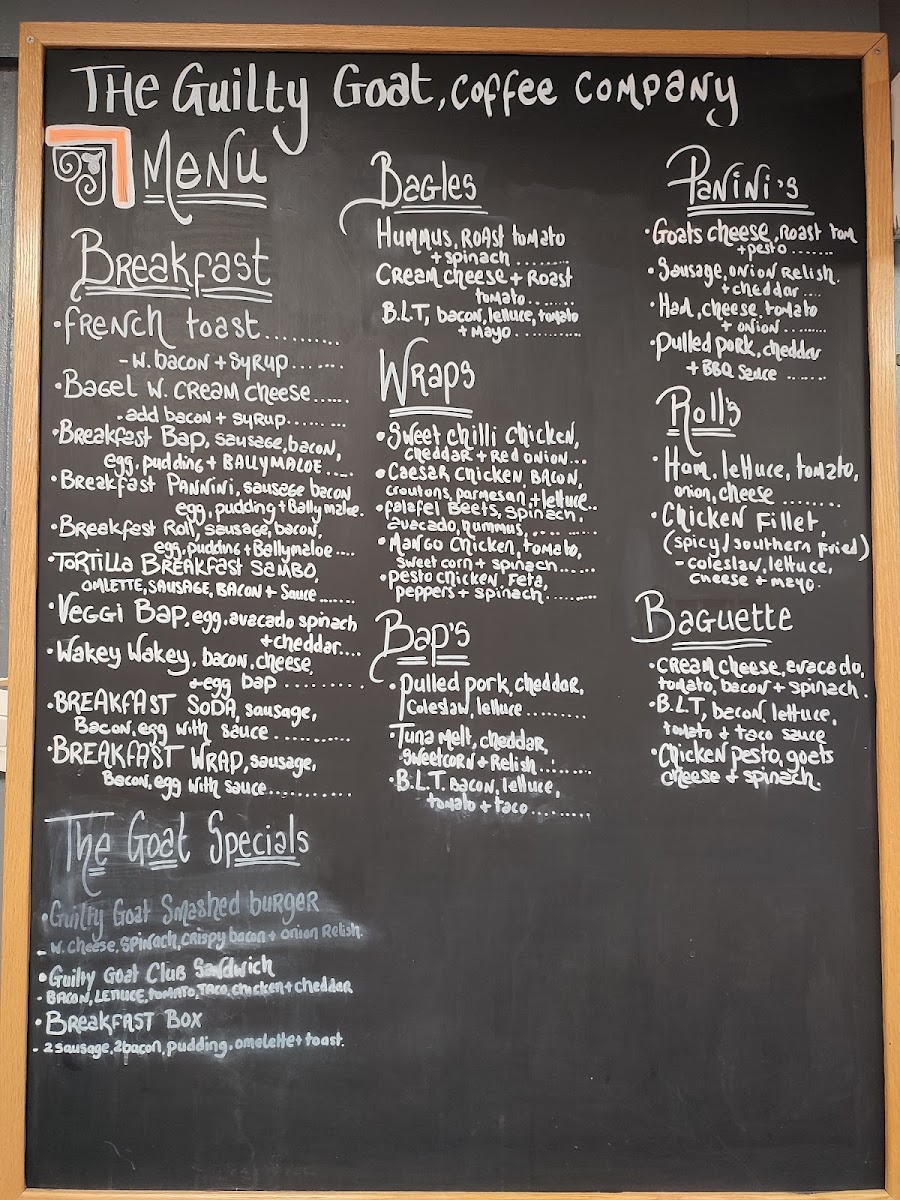 THE Guilty Goat, coffee company
Menu
Breakfast
• french toast..........
- w. bacon + syrup.......
• Bagel w. cream cheese.....
- add bacon + syrup........
• Breakfast Bap, sausage, bacon,
egg, pudding + BALLYMALOE....
• Breakfast Pannini, sausage bacon
egg, pudding + Ballymaloe.
• Breakfast Roll, sausage, bacon,
egg, pudding + Ballymaloe....
• Tortilla Breakfast Sambo,
omlette, sausage, bacon + sauce.......
• Veggi Bap, egg, avacado spinach
+ cheddar....
• Wakey Wakey, bacon, cheese,
+ egg bap..........
• BREAKFAST SODA, sausage,
Bacon, egg with sauce...........
• BREAKFAST WRAP, sausage,
Bacon, egg with sauce...........
The Goat Specials
• Guilty Goat Smashed burger
- w. cheese, spinach, crispy bacon + onion Relish.
• Guilty Goat Club Sandwich
- Bacon, Lettuce, tomato, taco, chicken + cheddar
• BREAKFAST BOX
- 2 sausage, 2 bacon, pudding, omolette + toast.
Bagles
Hummus, Roast tomato
+ spinach........
Cream cheese + Roast
tomato........
B.L.T, bacon, lettuce, tomato
+ mayo..........
Wraps
• Sweet chilli chicken,
cheddar + Red onion...
• Caesar chicken Bacon,
croutons, parmesan + lettuce..
• falafel Beets, spinach,
avacado, hummus..........
• Mango chicken, tomato,
sweet corn + spinach......
• Pesto chicken, Feta,
peppers + spinach.........
Bap's
• Pulled pork, cheddar,
Coleslaw, lettuce.........
• Tuna melt, cheddar,
sweetcorn + Relish.........
• B.L.T. bacon, lettuce,
tomato + taco..........
Panini's
• Goats cheese, roast tom
+ pesto.......
• Sausage, onion relish.
+ cheddar....
• Ham, cheese, tomato
+ onion........
• Pulled pork, cheddar
+ BBQ Sauce.......
Roll's
• Ham, lettuce, tomato,
onion, cheese.......
• Chicken Fillet,
(spicy/southern fried)
- coleslaw, lettuce,
cheese + mayo.
Baguette
• cream cheese, avacado,
tomato, bacon + spinach.
• B.L.T, bacon, lettuce,
tomato + taco sauce
• Chicken pesto, goats
cheese + spinach.